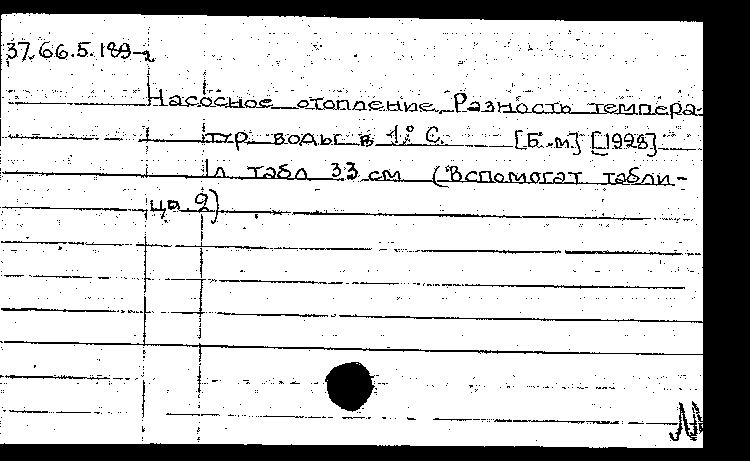 37.66.5.189-2
Насосное отопление. Разность темпера-
тур воды в 1° С. [Б.м] [1928]
1л табл 33 см (Вспомогат табли-
ца 2)